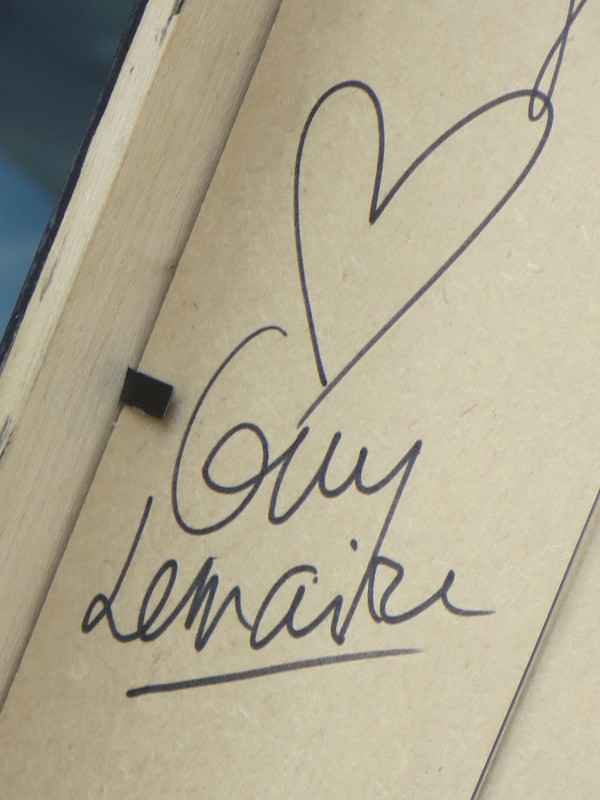 Guy
Lemaire